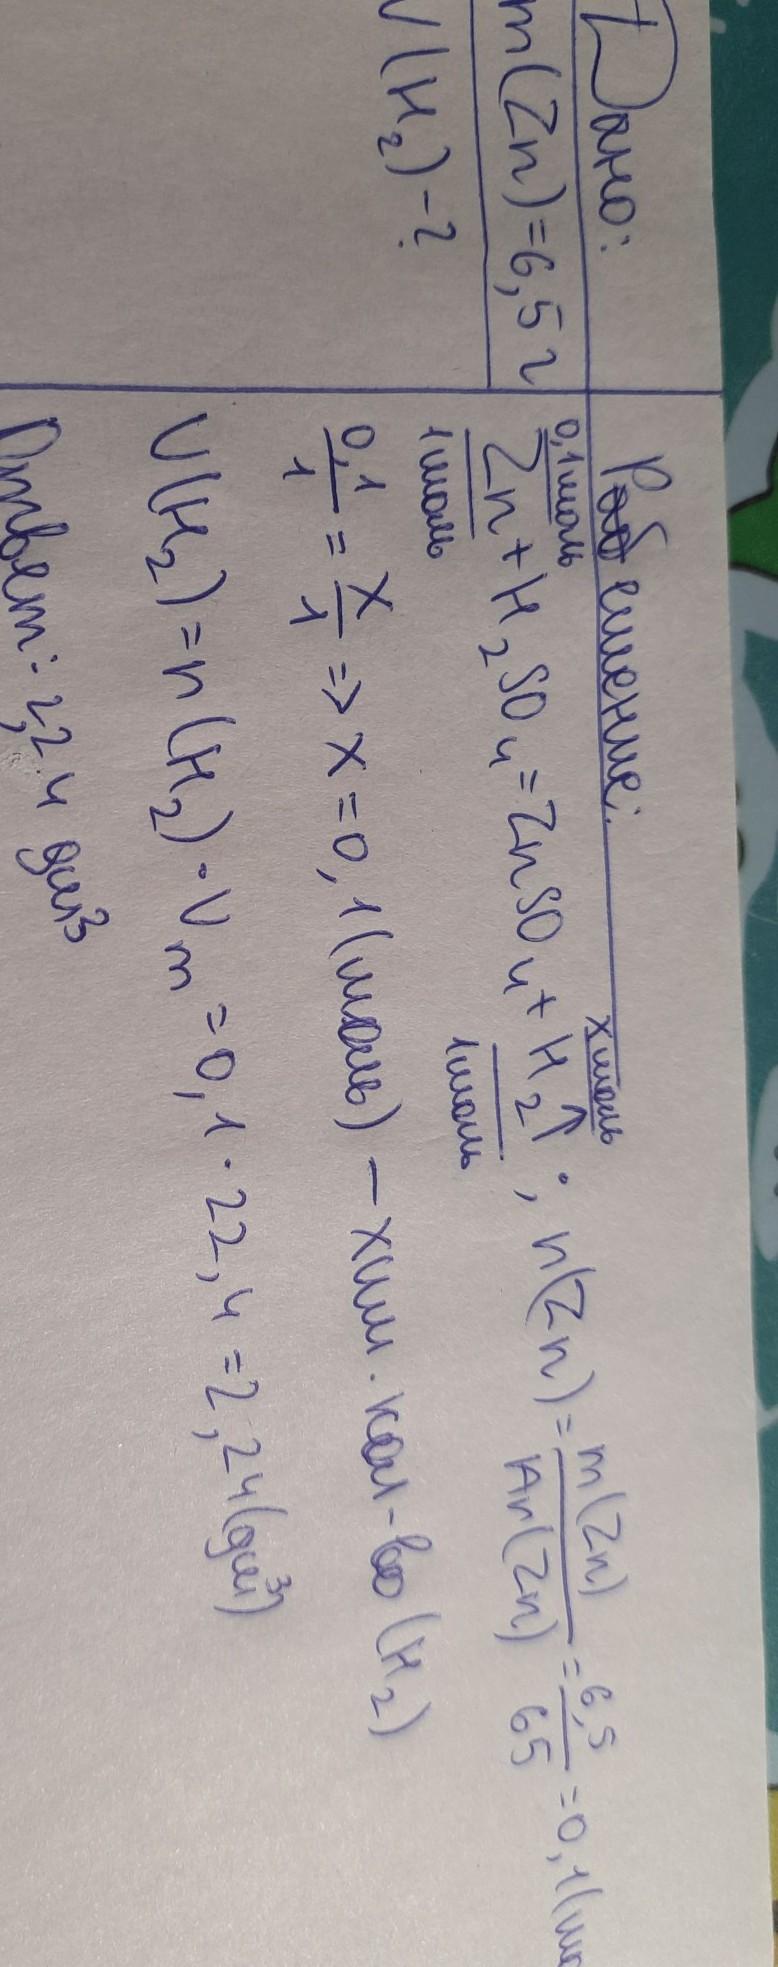 Дано:
m(Zn)=6,5г
V(H₂)-?
Решение:
0,1моль хмоль
Zn+H₂SO₄=ZnSO₄+H₂↑; n(Zn)=m(Zn)/Ar(Zn)=6,5/65=0,1(мо
1моль 1моль
0,1/1=x/1=>x=0,1(моль)-хим.кол-во(H₂)
V(H₂)=n(H₂)·Vm=0,1·22,4=2,24(дм³)
Ответ:2,24 дм³